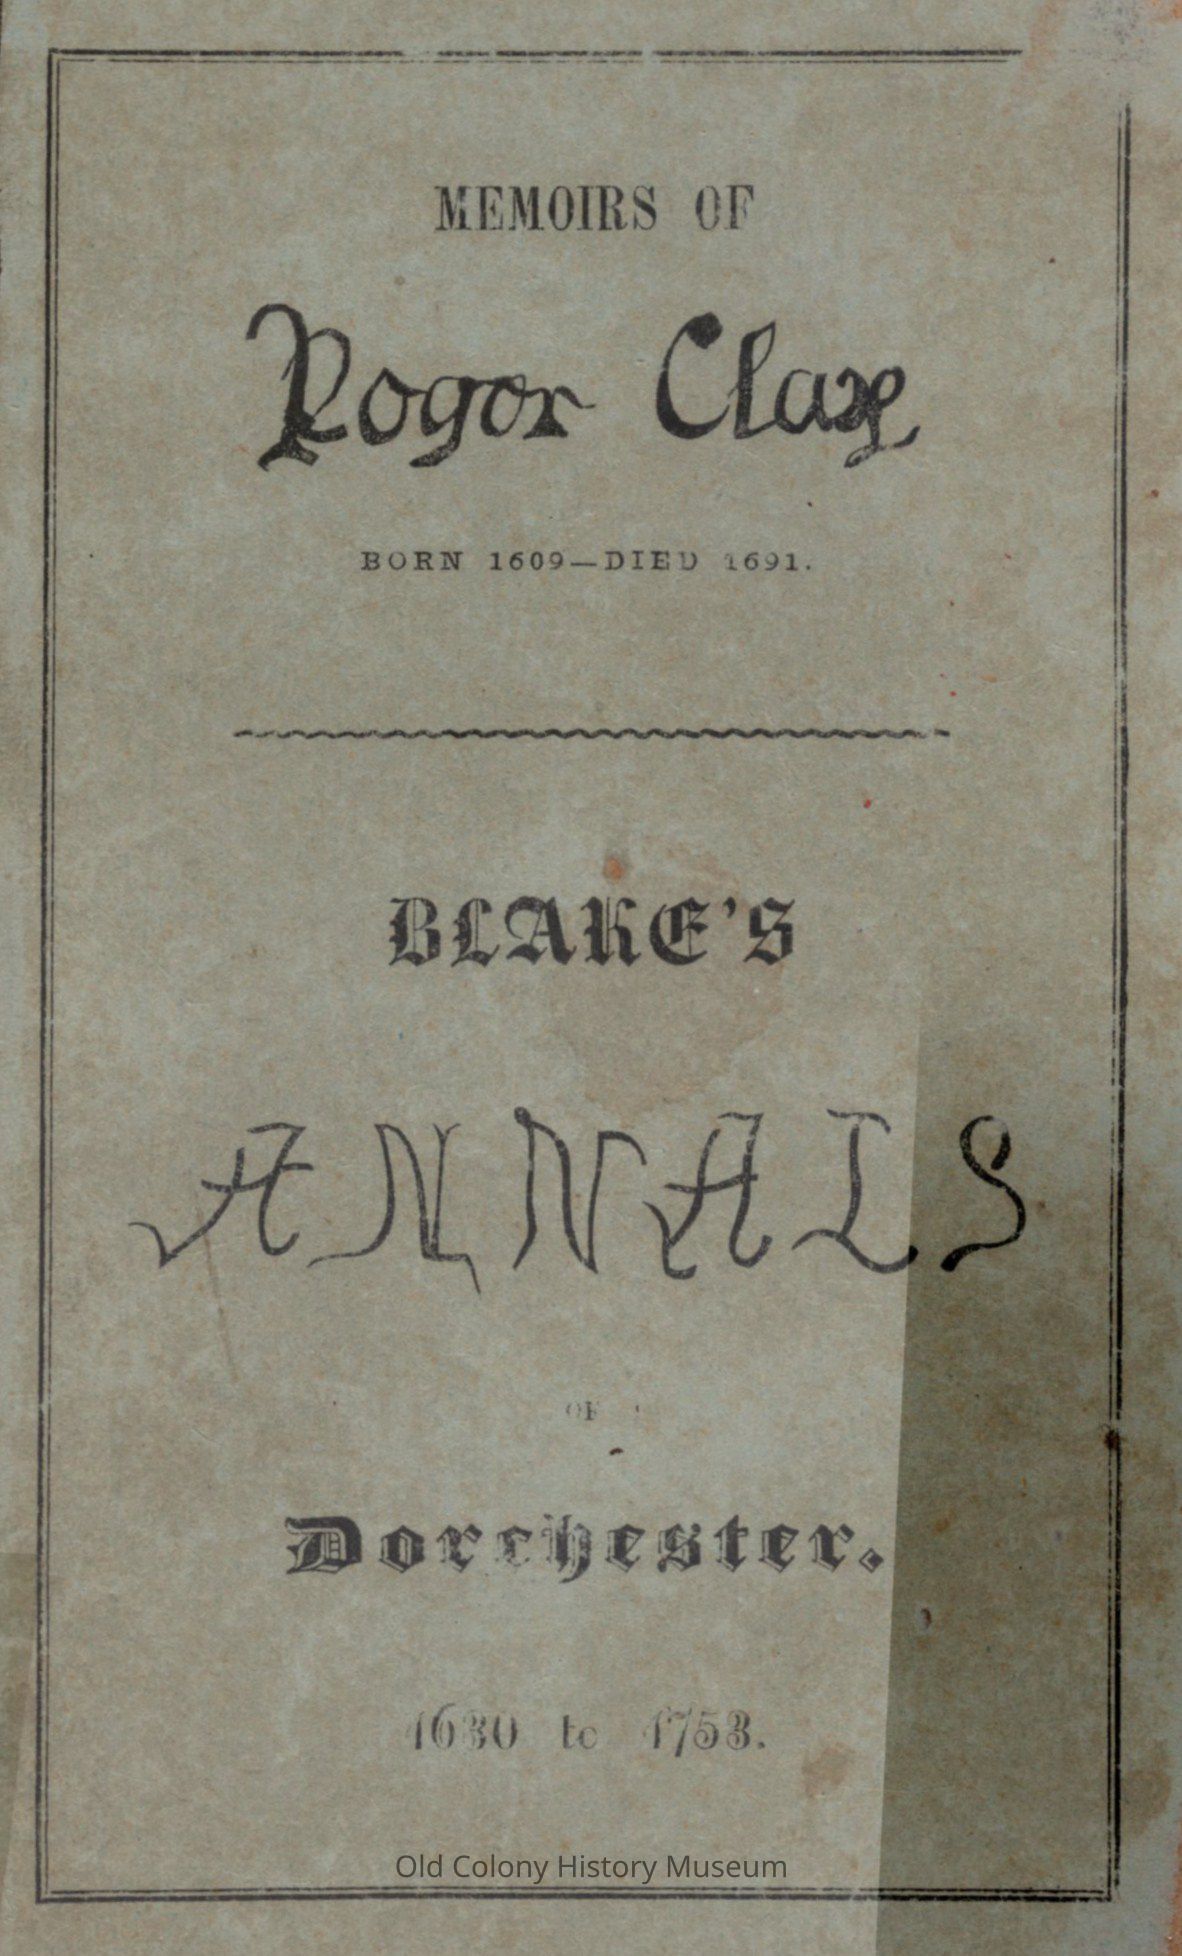 MEMOIRS OF
Roger Clap
BORN 1609—DIED 1691.
BLAKE'S
ANNALS
OF
Dorchester.
1630 to 1753.
Old Colony History Museum